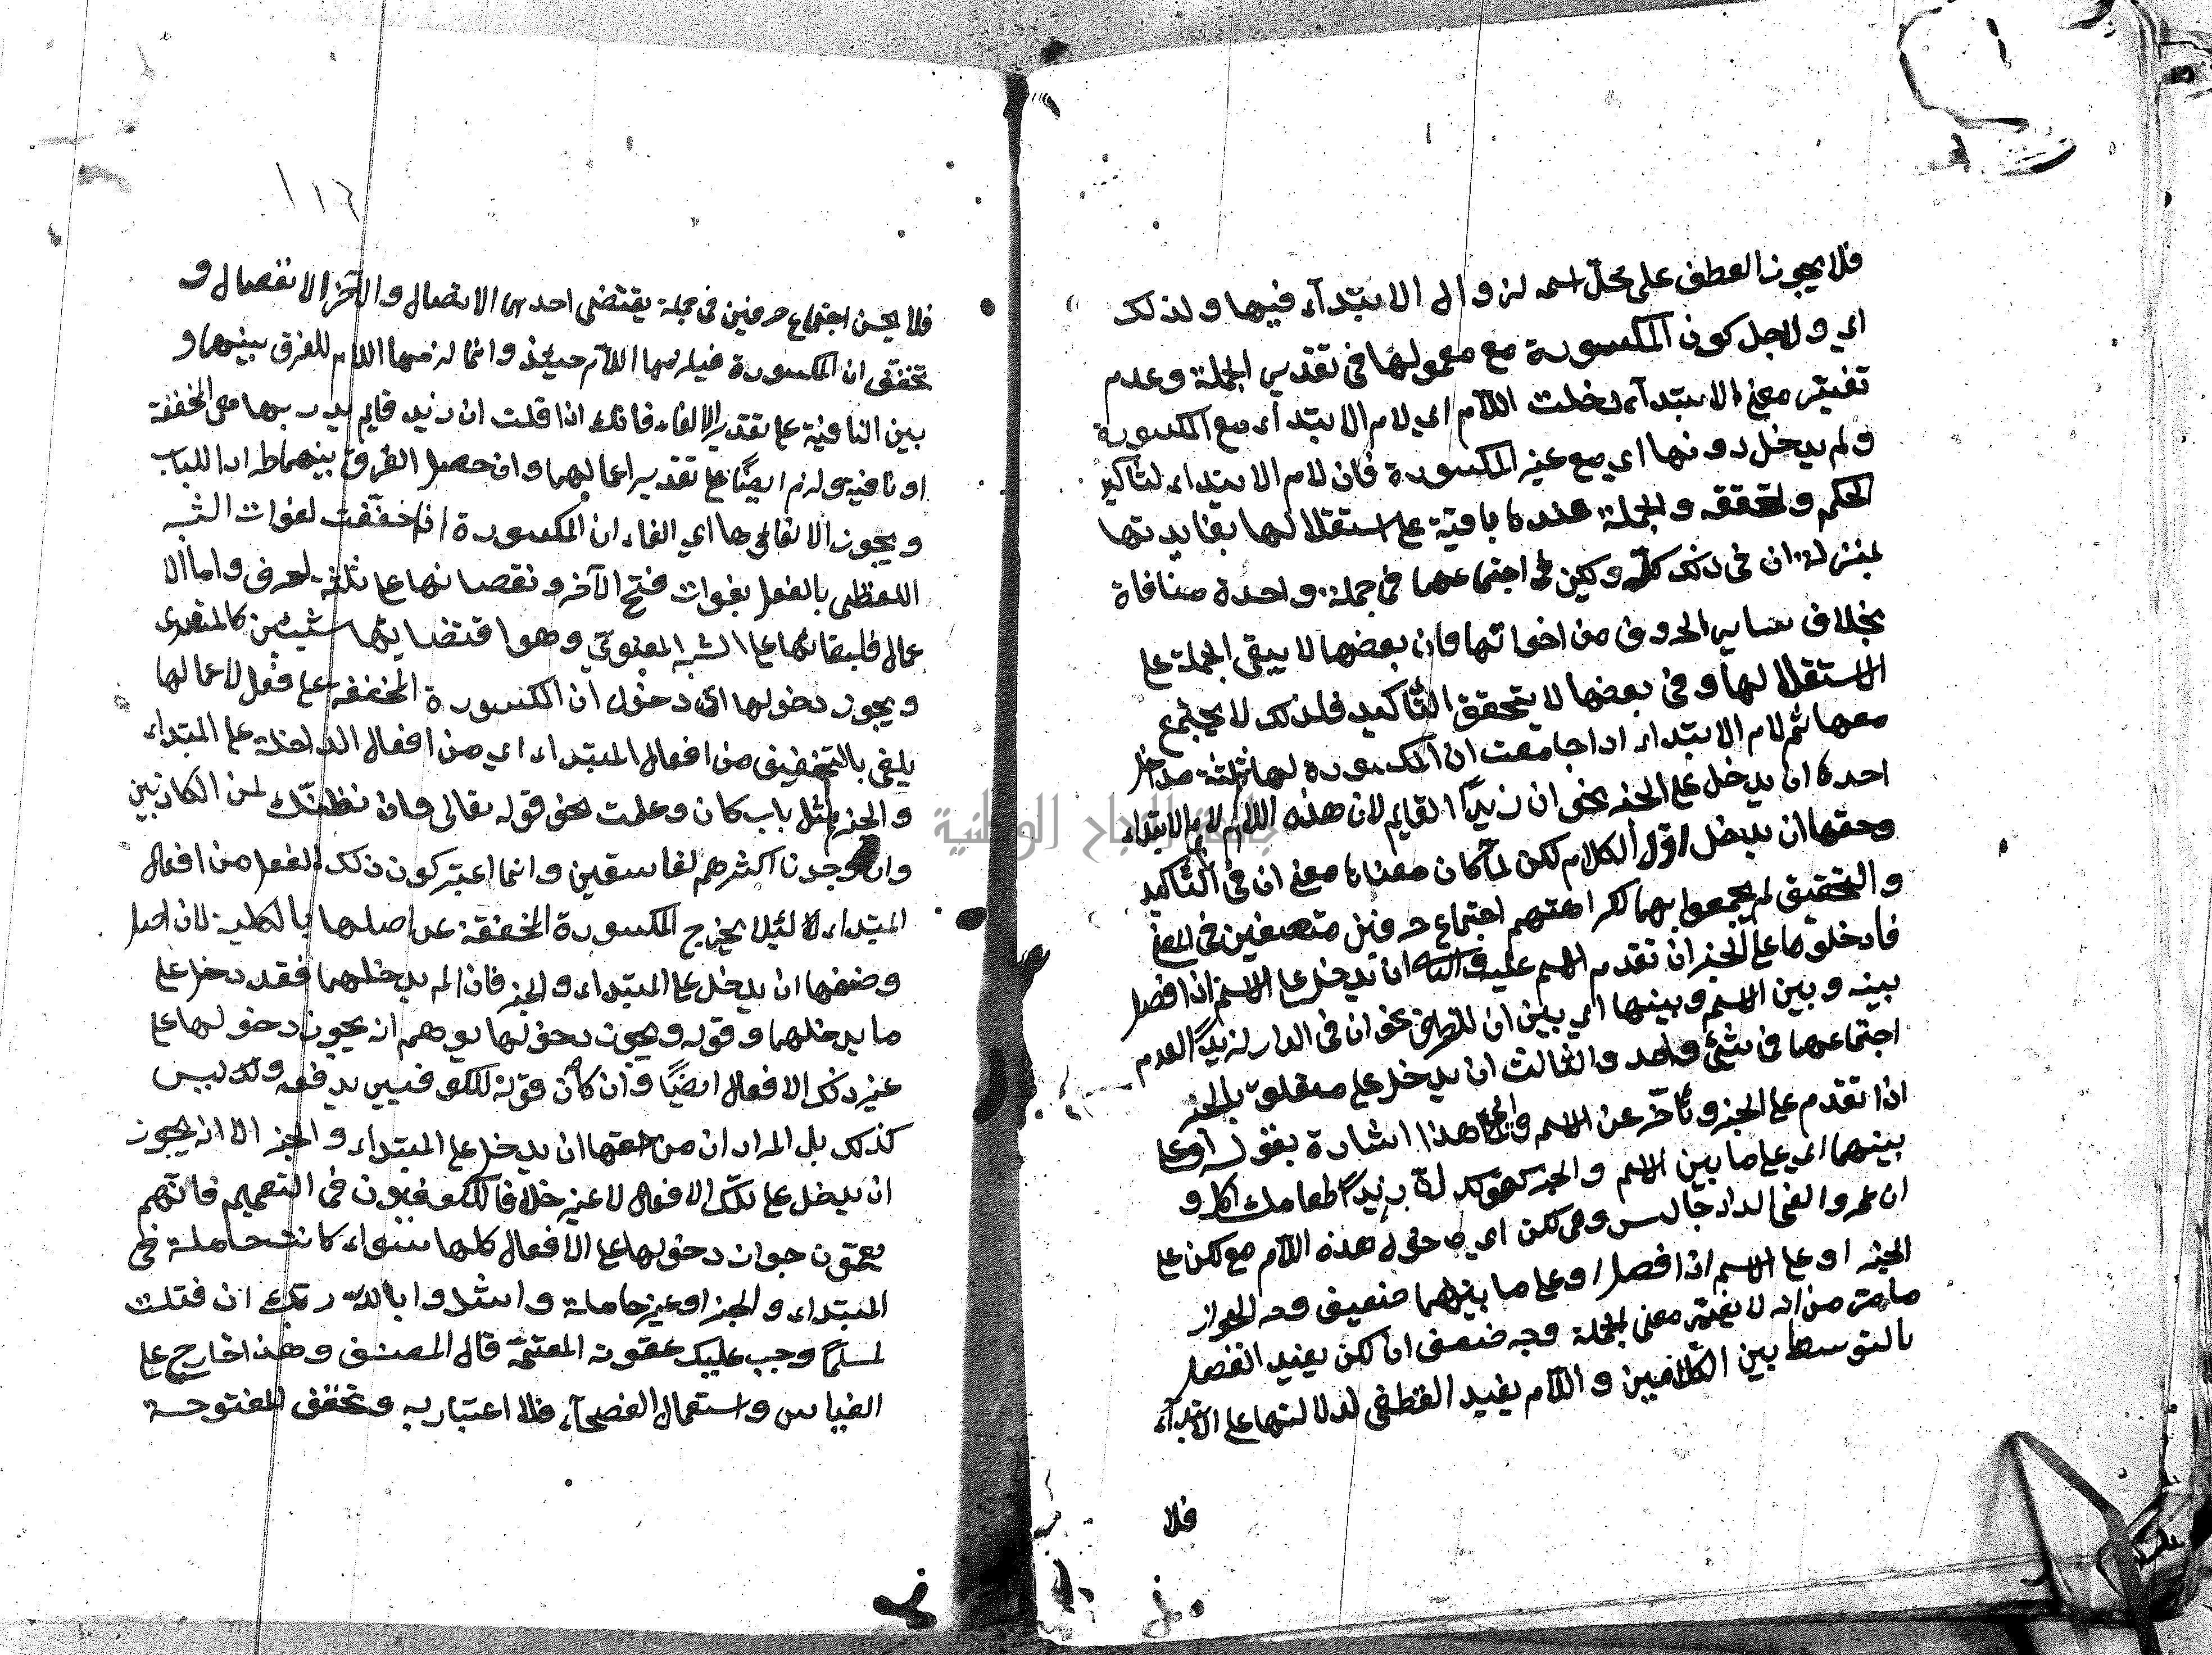 فلا يجوز العطف على محلّ اسمه لزوال الابتدآء فيها ولذلك
اي ولاجل كون المكسورة مع معمولها في تقدير الجملة وعدم
تغيّر معنى الابتدآء دخلت اللّام اي لام الابتداء مع المكسورة
ولم يدخل دونها اي مع غير المكسورة فان لام الابتداء لتأكيد
الحكم ولتحققه والجملة عنده باقية على استقلالها بفايدتها
بمنزلة ان في ذلك كلّه ولكن في اجتماعهما في جملة واحدة منافاة
بخلاف ساير الحروف من اخواتها فان بعضها لا يبقى الجملة على
الاستقلالها وفي بعضها لا يتحقق التّأكيد فلذلك لا يجتمع
معها ثم لام الابتداء اذا جامعت ان المكسورة لها ثلثة مداخل
احده ان يدخل على الخبر نحو ان زيدًا لقايم لان هذه اللام لام الابتداء
وحقها ان يدخل اوّل الكلام لكن لمّا كان معناها معنى ان في التّأكيد
والتحقيق لم يجمعوا بهما لكراهتهم اجتماع حرفين متصفين في المعنى
فادخلوها على الخبر ان تقدم الاسم عليه والثاني ان يدخل على الاسم اذا فصل
بينه وبين الاسم وبينها اي بين ان للظرف نحو ان في الدار لزيدًا لعدم
اجتماعهما في شئ واحد والثالث ان يدخل على متعلق بالخبر
اذا تقدم على الخبر وتأخّر عن الاسم والى هذا اشارة بقوله او على
بينهما اي على ما بين الاسم والخبر كقولك ان زيدًا لطعامك اكل و
ان عمروا لفي الدار جالس وفي لكن اي دخول هذه اللّام مع لكن على
الخبر او على الاسم اذا فصل او على ما بينهما ضعيف وجه الجواز
ما مرّ من انه لا يغيّر معنى الجملة وجه ضعف ان لكن يفيد الفصل
بالتوسط بين الكلامين واللّام يفيد القطع لدلالتها على الابتدآء
فلا
١١٦
فلا يحسن اجتماع حرفين في جملة يقتضى احدهما الاتصال والآخر الانفصال و
تخفف ان المكسورة فيلزمها اللّام حينئذ وانما لزمها اللام للفرق بينهما و
بين النافية على تقدير الالغاء فانك اذا قلت ان زيد قايم لم يدر بها هي المخففة
او نافية ولزم ايضًا على تقدير اعمالهما وان حصل الفرق بينهما طردا للباب
ويجوز الالغاؤها اي الغاء ان المكسورة اذا خففت لفوات الشبه
اللفظى بالفعل بفوات فتح الآخر ونقصانها على ثلثة احرف واما الا
عمال فلبقائها على الشبه المعنوي وهو اقتضايها شيئين كالمتعدى
ويجوز دخولها اي دخول ان المكسورة المخففة على فعل لاعمالها
يلغى بالتخفيف من افعال المبتداء اي من افعال الداخلة على المبتداء
والخبر مثل باب كان وعلمت نحو قوله تعالى وان نظنّك لمن الكاذبين
وان وجدنا اكثرهم لفاسقين وانما اعتبر كون ذلك الفعل من افعال
المبتداء لئلا يخرج المكسورة المخففة عن اصلها بالكلية لان اصل
وضعها ان يدخل على المبتداء والخبر فان لم يدخلهما فقد دخل على
ما يدخلهما وقوله ويجوز دخولها يوهم ان يجوز دخولها على
غير ذلك الافعال ايضًا وان كان قوله للكوفيين يدفعه وليس
كذلك بل المراد ان من حقها ان يدخل على المبتداء والخبر الا انه يجوز
ان يدخل على تلك الافعال لا غير خلافا للكوفيون في التعميم فانهم
يعمون جواز دخولها على الافعال كلها سواء كانت حاملة في
المبتداء والخبر او غير حاملة وانشدوا بالله ربك ان قتلت
لمسلمًا وجب عليك عقوبة المعتمّد قال المصنف وهذا خارج على
القياس واستعمال الفصحآء فلا اعتبار به وتخفف المفتوحة